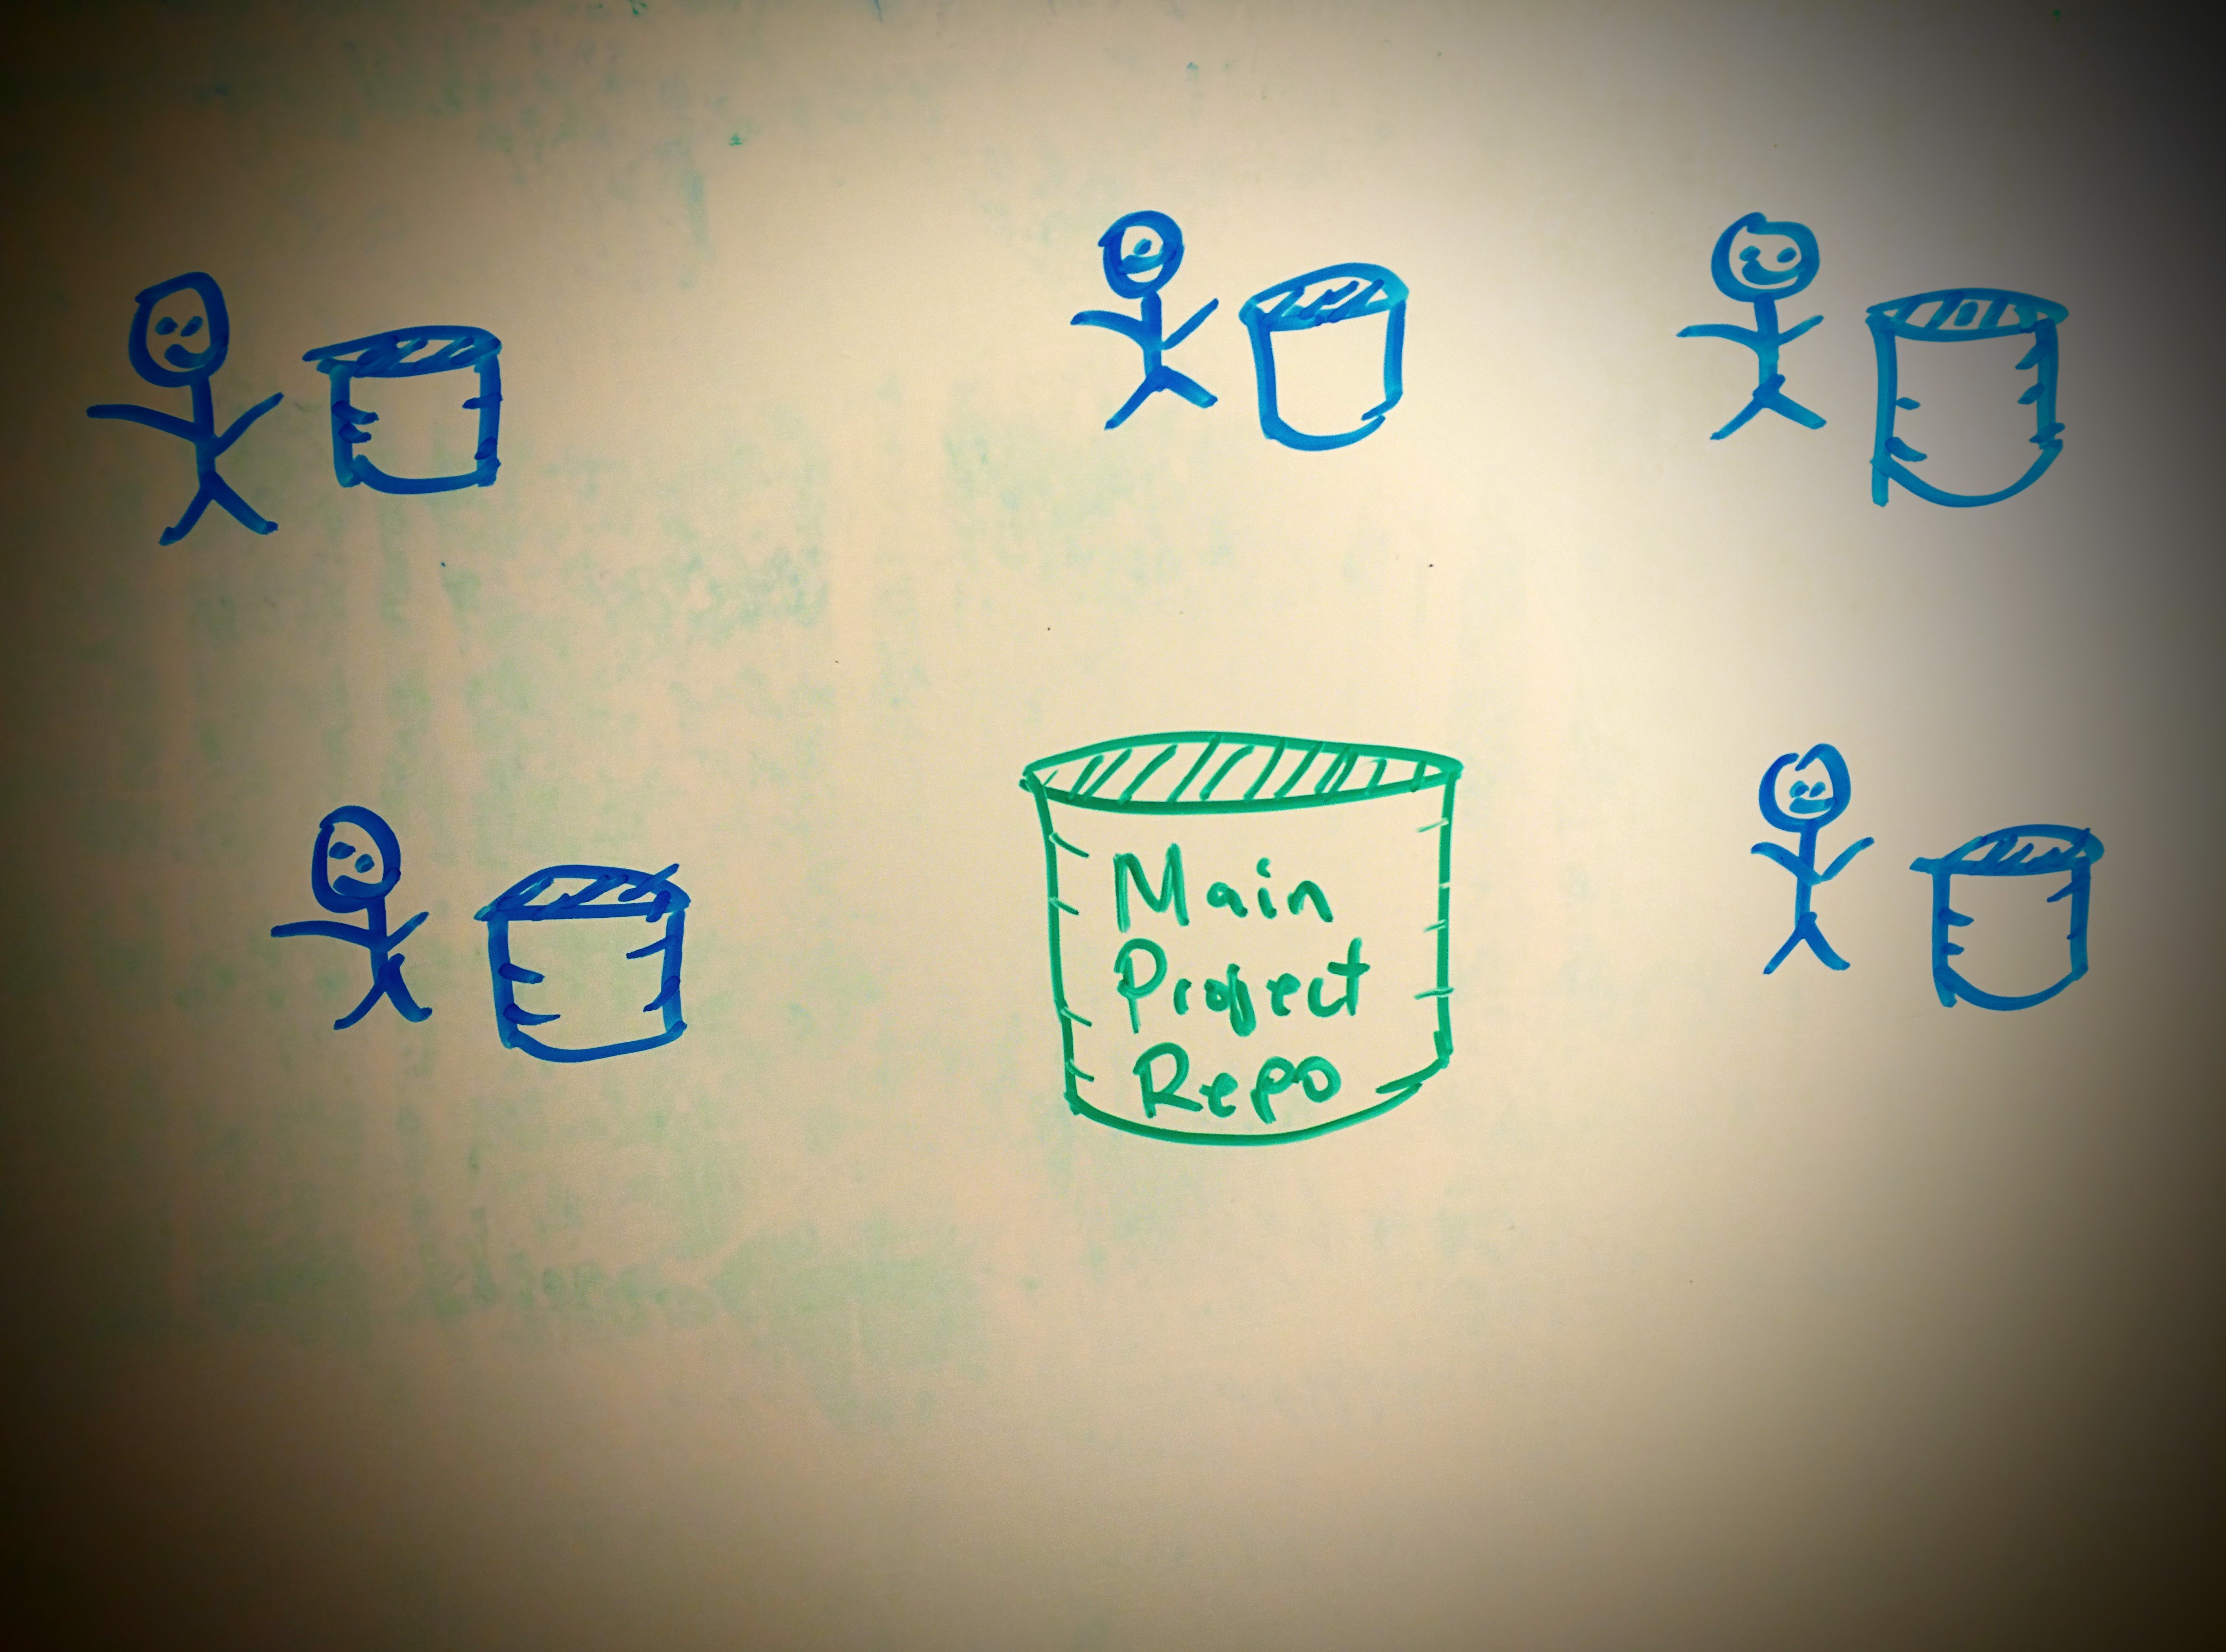 Main
Project
Repo